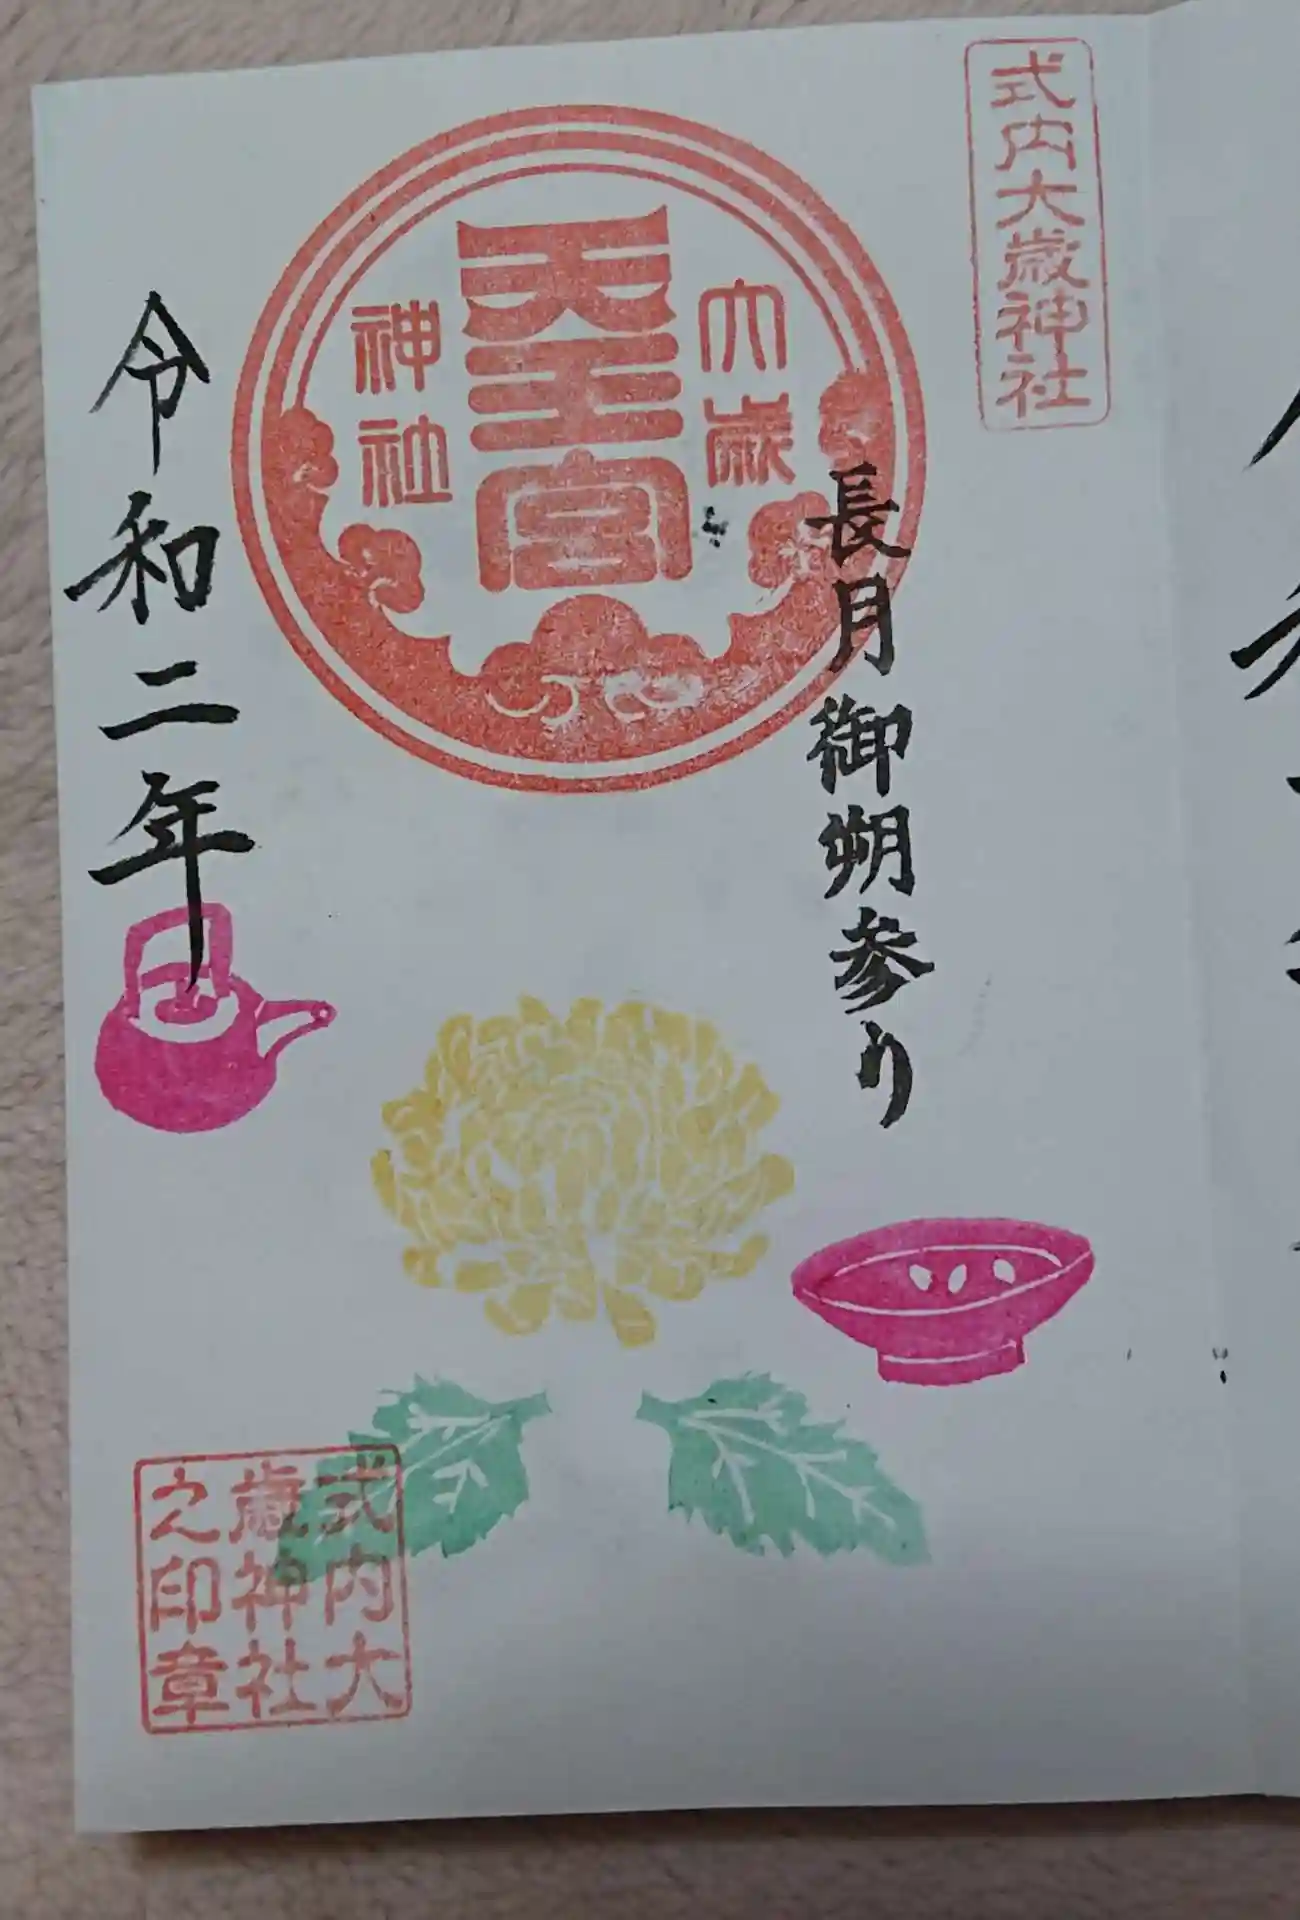 式内大歳神社
長月御朔参り
大歳
天王宮
神社
令和二年
式内大
歳神社
之印章